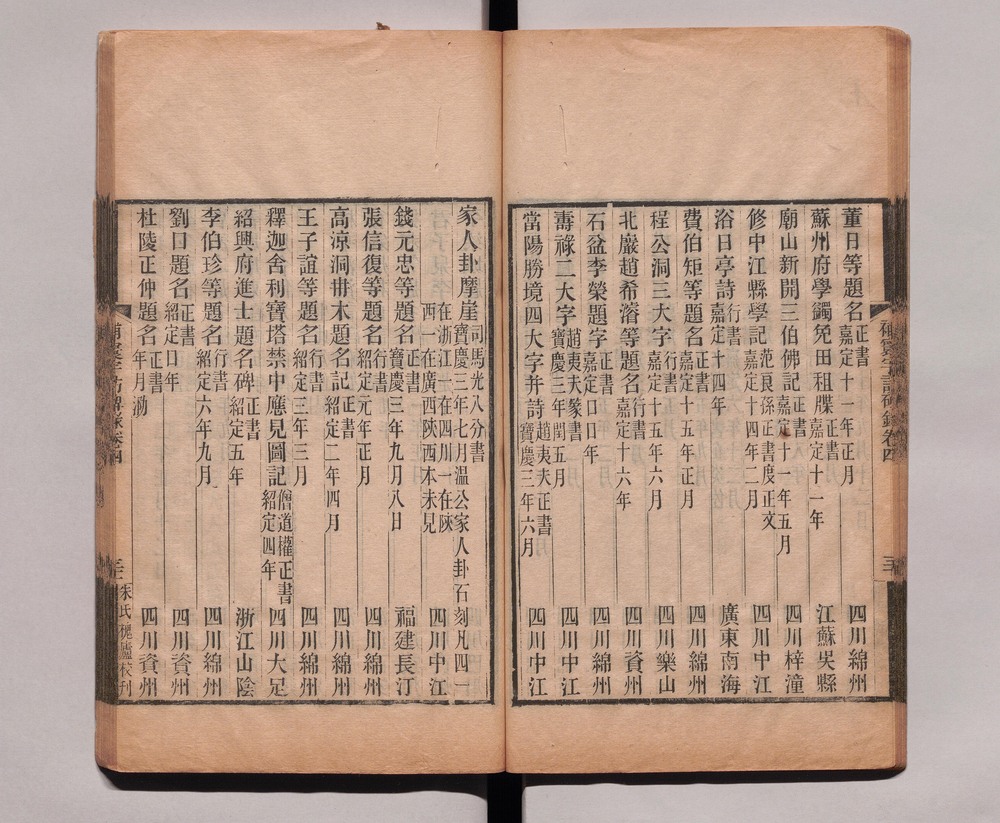 董日等題名 正書 嘉定十一年正月 四川綿州
蘇州府學蠲免田租牒 正書 嘉定十一年 江蘇吳縣
廟山新開三伯佛記 正書 嘉定十一年五月 四川梓潼
修中江縣學記 范良孫正書度正文 嘉定十四年二月 四川中江
浴日亭詩 行書 嘉定十四年 廣東南海
費伯矩等題名 正書 嘉定十五年正月 四川綿州
程公洞三大字 行書 嘉定十五年六月 四川樂山
北巖趙希濬等題名 行書 嘉定十六年 四川資州
石盆李榮題字 正書 嘉定口口年 四川綿州
壽祿二大字 趙夷夫篆書 寶慶三年閏五月 四川中江
當陽勝境四大字并詩 趙夷夫正書 寶慶三年六月 四川中江
補寰宇訪碑錄卷四
家人卦摩崖 司馬光八分書 寶慶三年七月溫公家人卦石刻凡四一
在浙江一在四川一在陝西一在廣西陝西本未見 四川中江
錢元忠等題名 正書 寶慶三年九月八日 福建長汀
張信復等題名 行書 紹定元年正月 四川綿州
高涼洞冊木題名記 正書 紹定二年四月 四川綿州
王子誼等題名 行書 紹定三年三月 四川綿州
釋迦舍利寶塔禁中應見圖記 僧道權正書 紹定四年 四川大足
紹興府進士題名碑 正書 紹定五年 浙江山陰
李伯珍等題名 行書 紹定六年九月 四川綿州
劉口題名 正書 紹定口年 四川資州
杜陵正仲題名 正書 年月泐 四川資州
補寰宇訪碑錄卷四
朱氏槐廬校刊